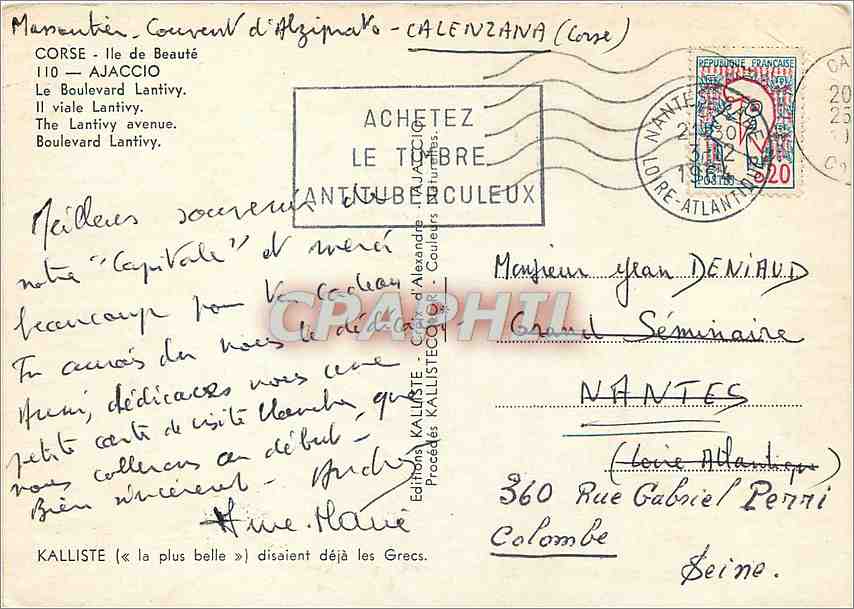 Massoutier - Couvent d'Alziprato - CALENZANA (Corse)
CORSE - Ile de Beauté
110 — AJACCIO
Le Boulevard Lantivy.
Il viale Lantivy.
The Lantivy avenue.
Boulevard Lantivy.
ACHETEZ
LE TIMBRE
ANTITUBERCULEUX
REPUBLIQUE FRANÇAISE
0,20
POSTES
NANTES GARE
21H30
3-12
1964
LOIRE-ATLANTIQUE
Meilleurs souvenirs de
notre "Capitale" et merci
beaucoup pour ton cadeau
Tu aurais du nous le dédicacer.
Aussi, dédicaces nous une
petite carte de visite blanche, que
nous collerons au début -
Bien sincèrement - André
Anne-Marie
Editions KALLISTE - Croix d'Alexandre - AJACCIO
Procédés KALLISTECOLOR - Couleurs Naturelles.
Monsieur Jean DENIAUD
Grand Séminaire
NANTES
(Loire Atlantique)
360 Rue Gabriel Perri
Colombe
Seine.
KALLISTE (« la plus belle ») disaient déjà les Grecs.
CPAPHIL